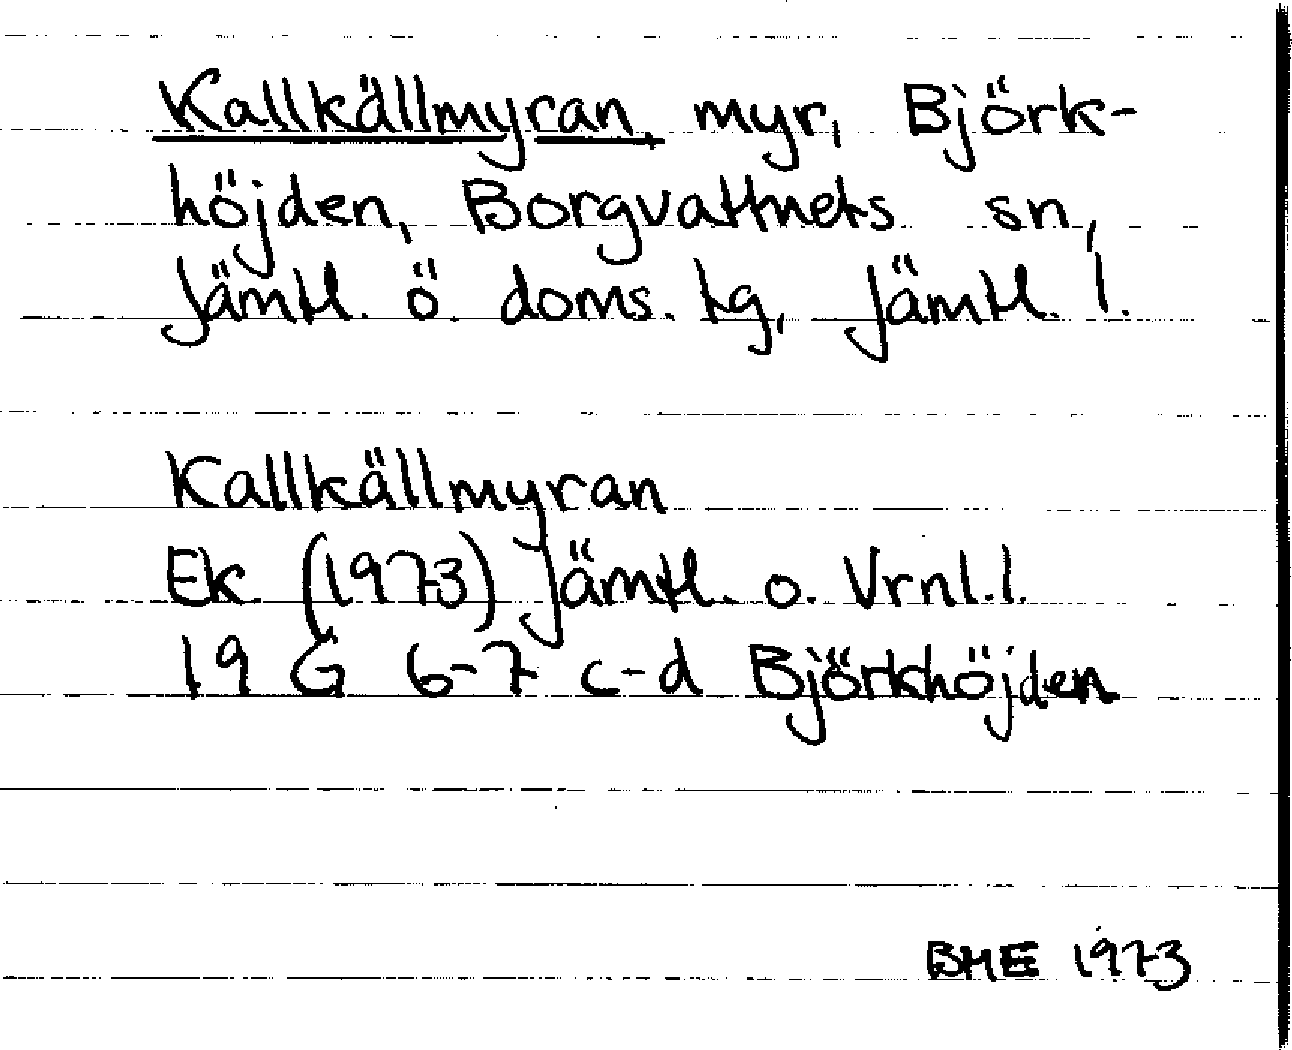 Kallkällmyran, myr, Björk-
höjden, Borgvattnets sn,
Jämtl. ö. doms. tg, Jämtl. l.
Kallkällmyran
Ek (1973) Jämtl. o. Vrnl.l.
19 G 6-7 c-d Björkhöjden
BME 1973